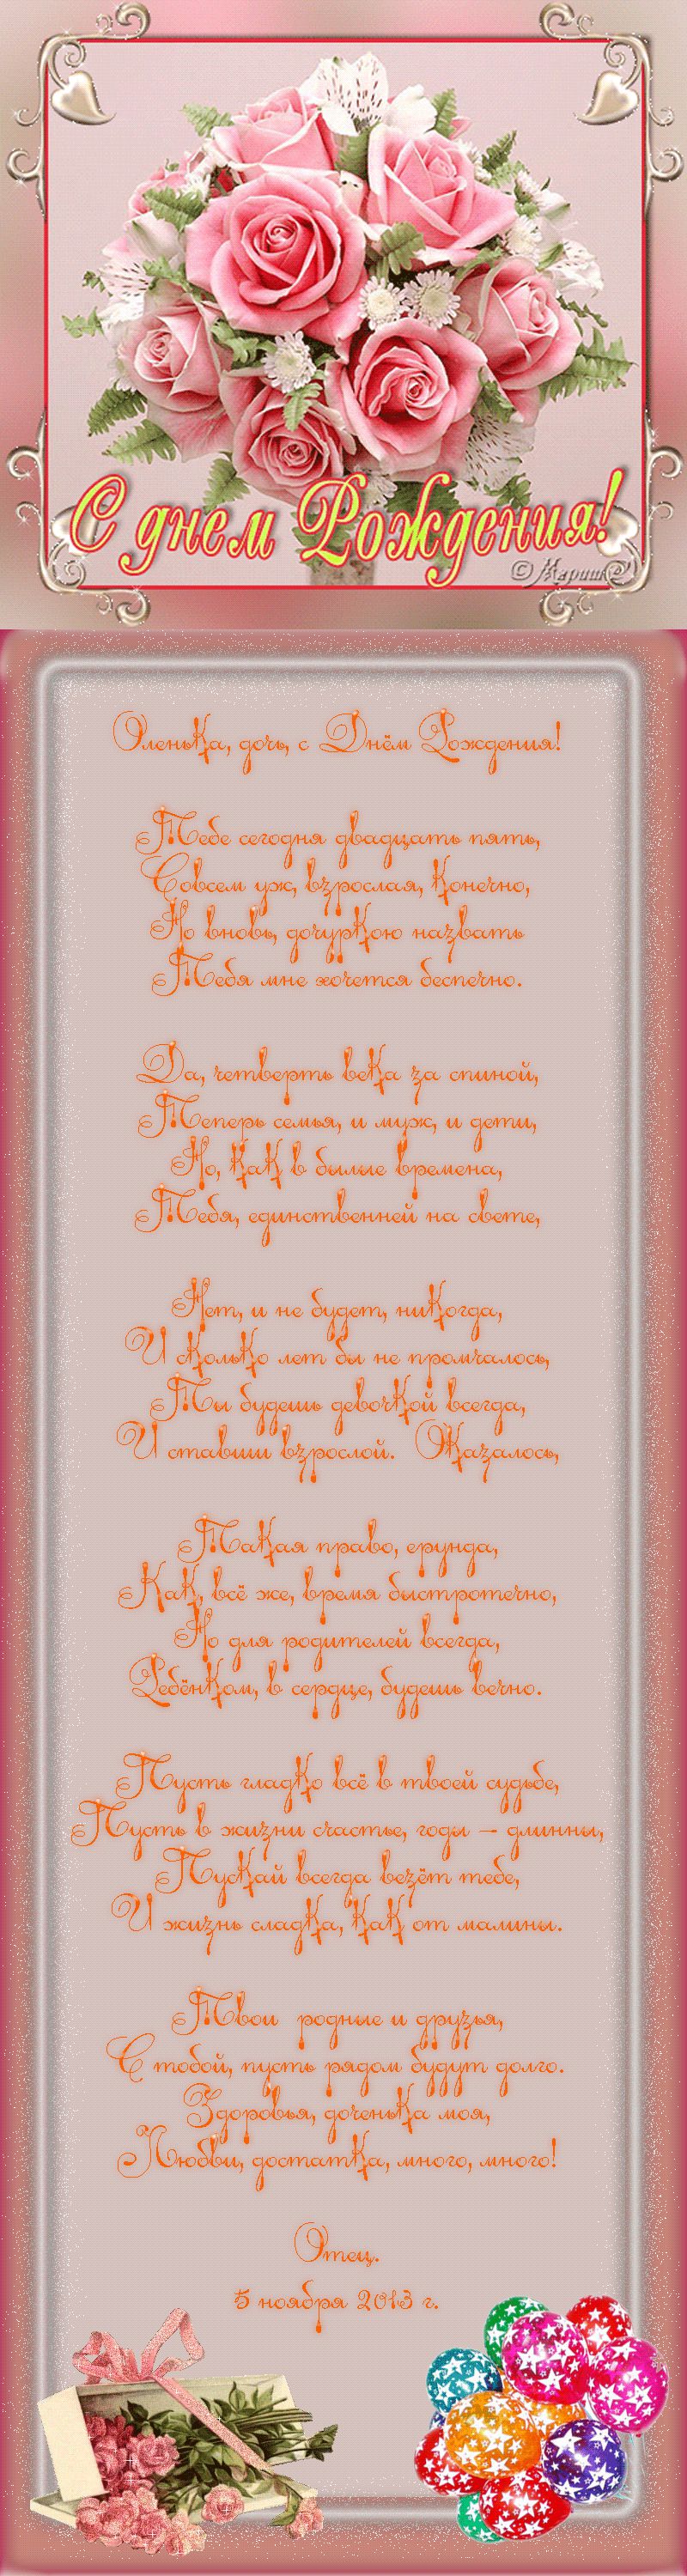 С днем Рождения!
©Мариш@
Оленька, дочь, с Днём Рождения!
Тебе сегодня двадцать пять,
Совсем уж, взрослая, конечно,
Но вновь, дочуркою назвать
Тебя мне хочется беспечно.
Да, четверть века за спиной,
Теперь семья, и муж, и дети,
Но, как в былые времена,
Тебя, единственней на свете,
Нет, и не будет, никогда,
И сколько лет бы не промчалось,
Ты будешь девочкой всегда,
И ставши взрослой. Оказалось,
Такая право, ерунда,
Как, всё же, время быстротечно,
Но для родителей всегда,
Ребёнком, в сердце, будешь вечно.
Пусть гладко всё в твоей судьбе,
Пусть в жизни счастье, годы – длинны,
Пускай всегда везёт тебе,
И жизнь сладка, как от малины.
Твои родные и друзья,
С тобой, пусть рядом будут долго.
Здоровья, доченька моя,
Любви, достатка, много, много!
Отец.
5 ноября 2013 г.